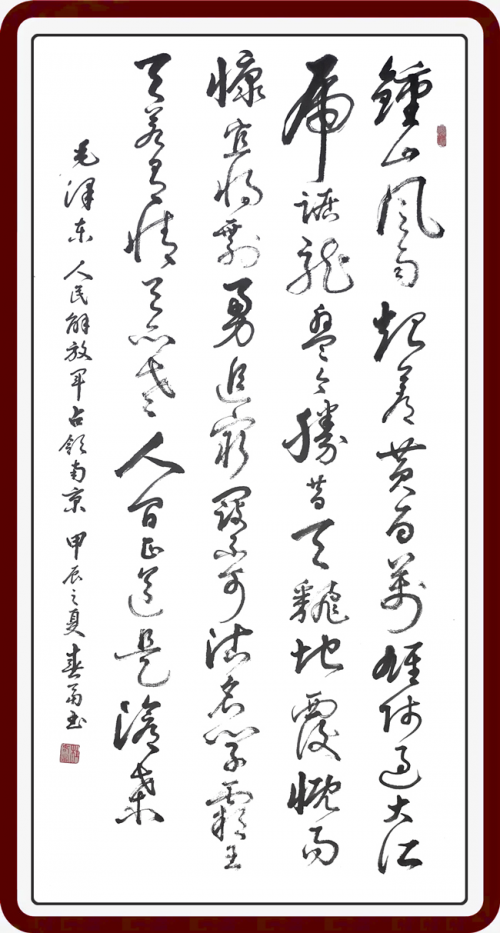 鍾山风雨起苍黄百萬雄师过大江
虎踞龙盘今勝昔天翻地覆慨而
慷宜将剩勇追穷寇不可沽名学霸王
天若有情天亦老人间正道是沧桑
毛泽东 人民解放军占领南京 甲辰之夏 春 书